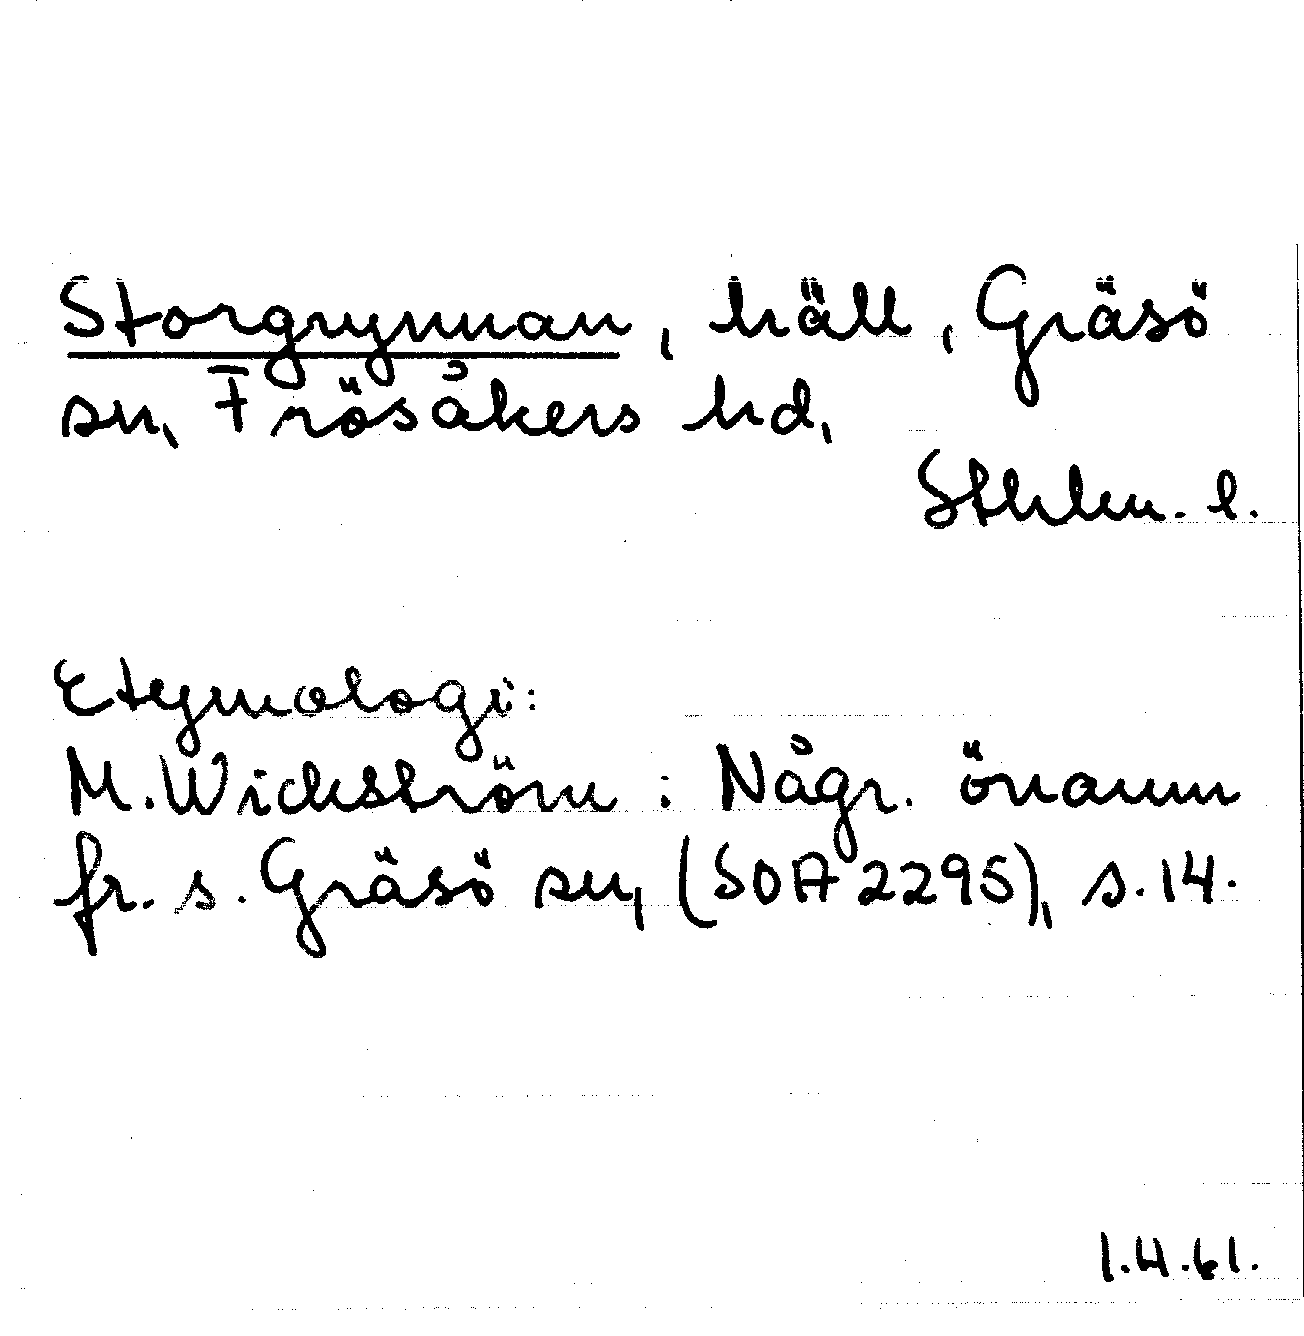 Storgrynnan, häll, Gräsö
sn, Frösåkers hd,
Sthlm. l.
Etymologi:
M. Wickström: Någr. önamn
fr. s. Gräsö sn, (SOA 2295), s. 14.
1.4.61.